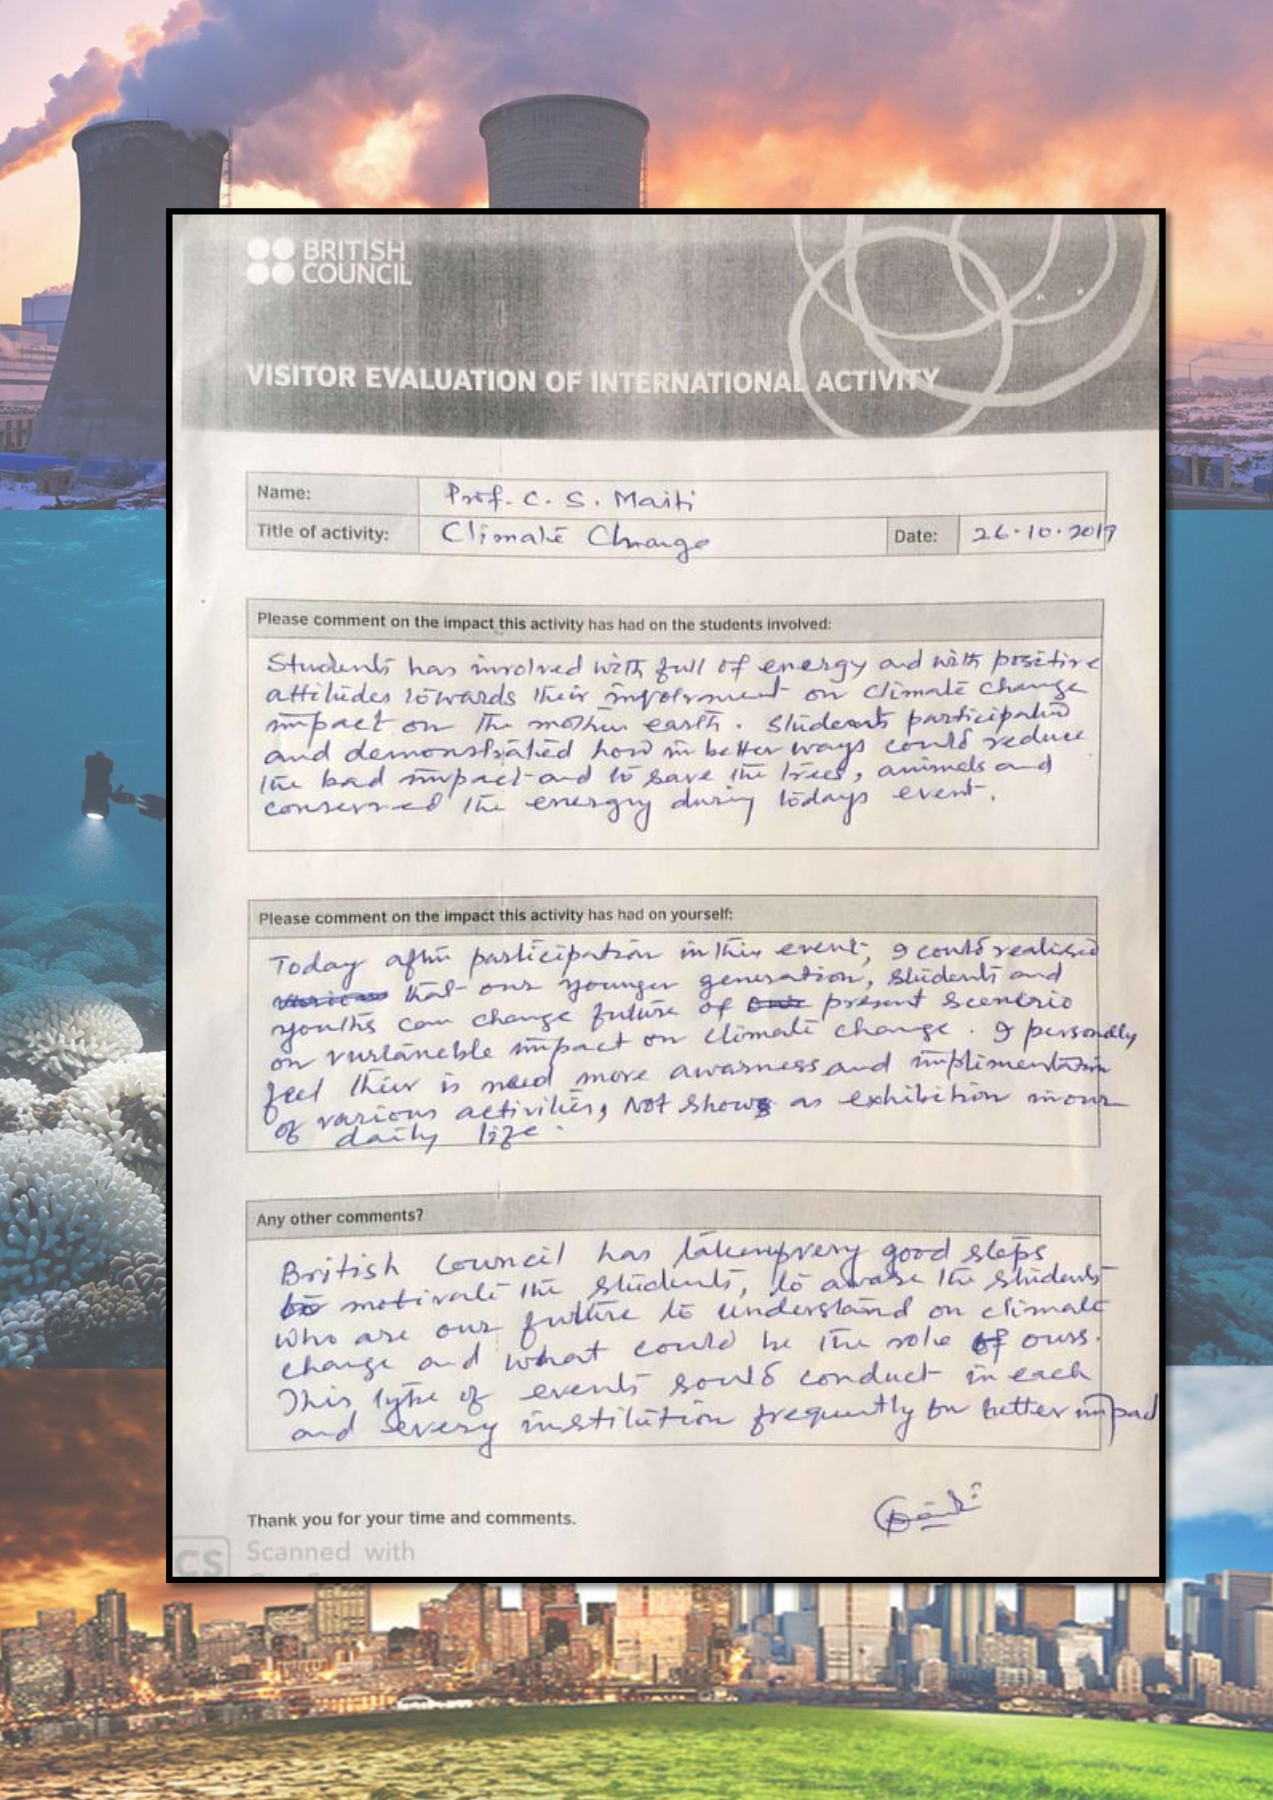 BRITISH
COUNCIL
VISITOR EVALUATION OF INTERNATIONAL ACTIVITY
Name: Prof. C. S. Maiti
Title of activity: Climate Change Date: 26.10.2019
Please comment on the impact this activity has had on the students involved:
Students has involved with full of energy and with positive
attitudes towards their involvment on climate change
impact on the mother earth. Students participated
and demonstrated how in better ways could reduce
the bad impact and to save the trees, animals and
conserved the energry during todays event.
Please comment on the impact this activity has had on yourself:
Today after participation in this event, I could realised
that our younger generation, students and
youths can change future of present scenerio
on vurlaneble impact on climate change. I personally
feel their is need more awarness and implimentation
of various activities, Not shows as exhibition in our
daily life.
Any other comments?
British Council has taken very good steps
to motivate the students, to aware the students
who are our future to understand on climate
change and what could be the role of ours.
This type of events sould conduct in each
and every institution frequently for better impact
Thank you for your time and comments.
CS Scanned with